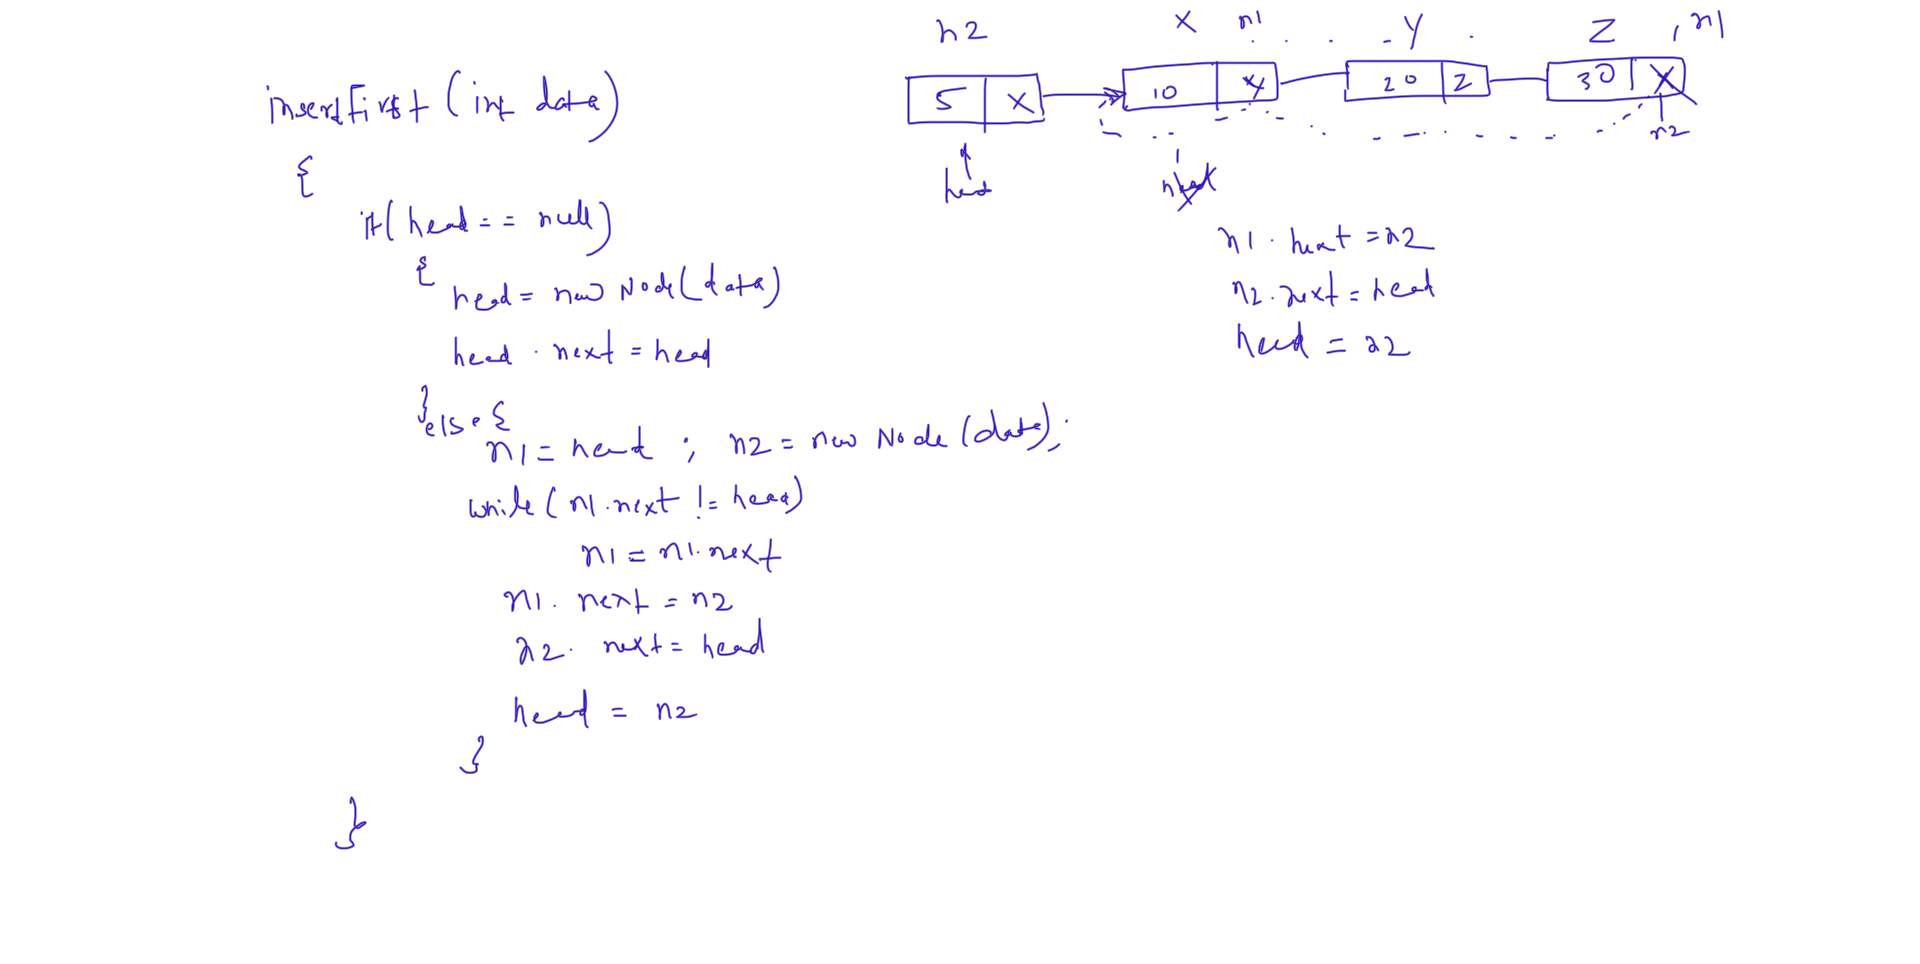 insertFirst (int data)
{
if( head == null)
{
head = new Node(data)
head . next = head
}
else {
n1 = head ; n2 = new Node (data);
while ( n1.next != head)
n1 = n1.next
n1. next = n2
n2. next = head
head = n2
}
}
n2 X n1 Y Z , n1
5 X 10 Y 20 Z 30 X
n2
head
n1 . next = n2
n2 . next = head
head = n2